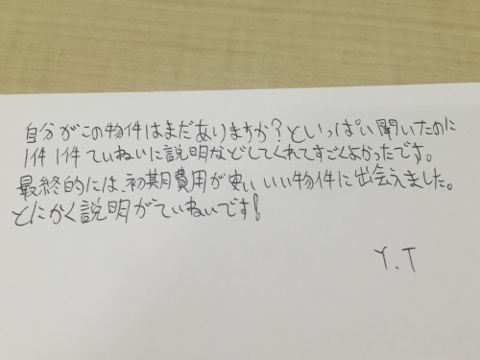 自分がこの物件はまだありますか?といっぱい聞いたのに
1件1件ていねいに説明などしてくれてすごくよかったです。
最終的には、初期費用が安い いい物件に出会えました。
とにかく説明がていねいです!
Y.T